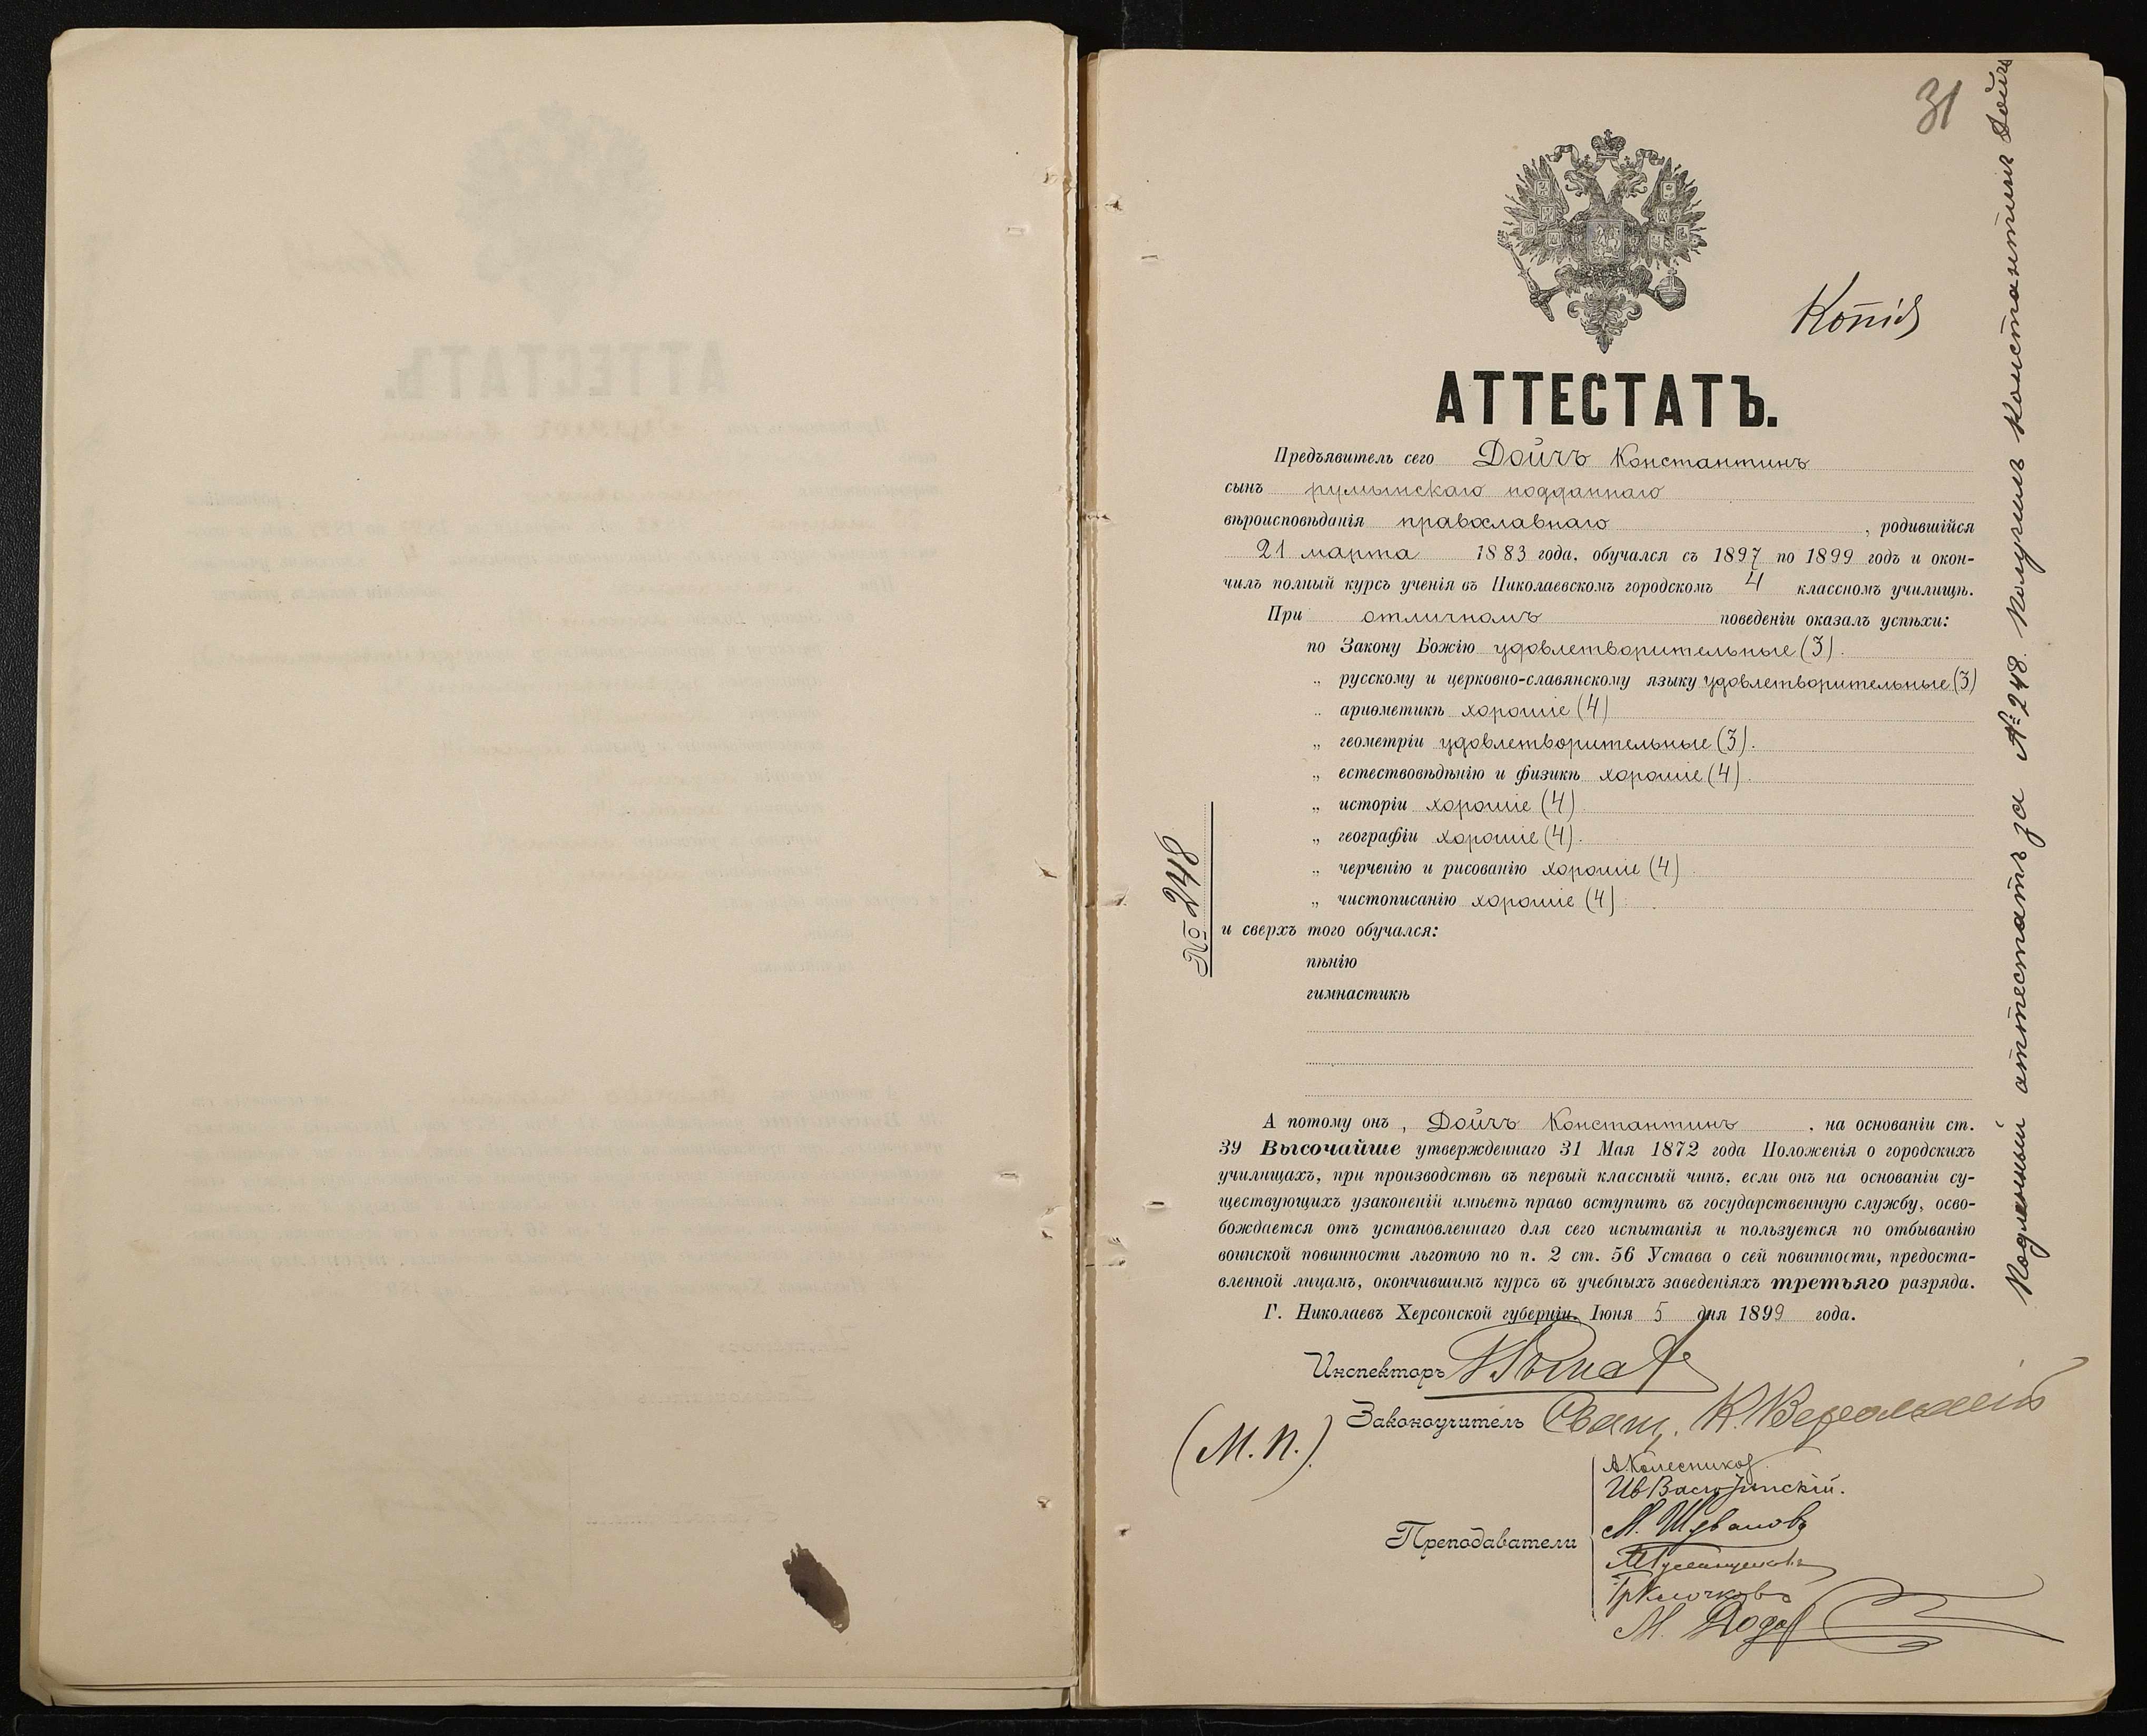 31
Копія
АТТЕСТАТЪ.
Предъявитель сего Дойчъ Константинъ
сынъ румынскаго подданнаго
вѣроисповѣданія православнаго, родившійся
21 марта 1883 года, обучался съ 1897 по 1899 годъ и окон-
чилъ полный курсъ ученія въ Николаевскомъ городскомъ 4 классномъ училищѣ.
При отличномъ поведеніи оказалъ успѣхи:
по Закону Божію удовлетворительные (3).
„ русскому и церковно-славянскому языку удовлетворительные (3)
„ ариѳметикѣ хорошіе (4)
„ геометріи удовлетворительные (3).
„ естествовѣдѣнію и физикѣ хорошіе (4).
„ исторіи хорошіе (4).
„ географіи хорошіе (4).
„ черченію и рисованію хорошіе (4)
„ чистописанію хорошіе (4).
и сверхъ того обучался:
пѣнію
гимнастикѣ
А потому онъ, Дойчъ Константинъ, на основаніи ст.
39 Высочайше утвержденнаго 31 Мая 1872 года Положенія о городскихъ
училищахъ, при производствѣ въ первый классный чинъ, если онъ на основаніи су-
ществующихъ узаконеній имѣетъ право вступить въ государственную службу, осво-
бождается отъ установленнаго для сего испытанія и пользуется по отбыванію
воинской повинности льготою по п. 2 ст. 56 Устава о сей повинности, предоста-
вленной лицамъ, окончившимъ курсъ въ учебныхъ заведеніяхъ третьяго разряда.
Г. Николаевъ Херсонской губерніи. Іюня 5 дня 1899 года.
Инспекторъ
Законоучитель Свящ. К.
(М. П.)
Преподаватели
А. Колесников
Ив
М. Шувановъ
Гр Клочковъ
М. Додо
№ 248
Подлинный аттестатъ за № 248. Получилъ Константинъ Дойчъ
АТТЕСТАТЪ.